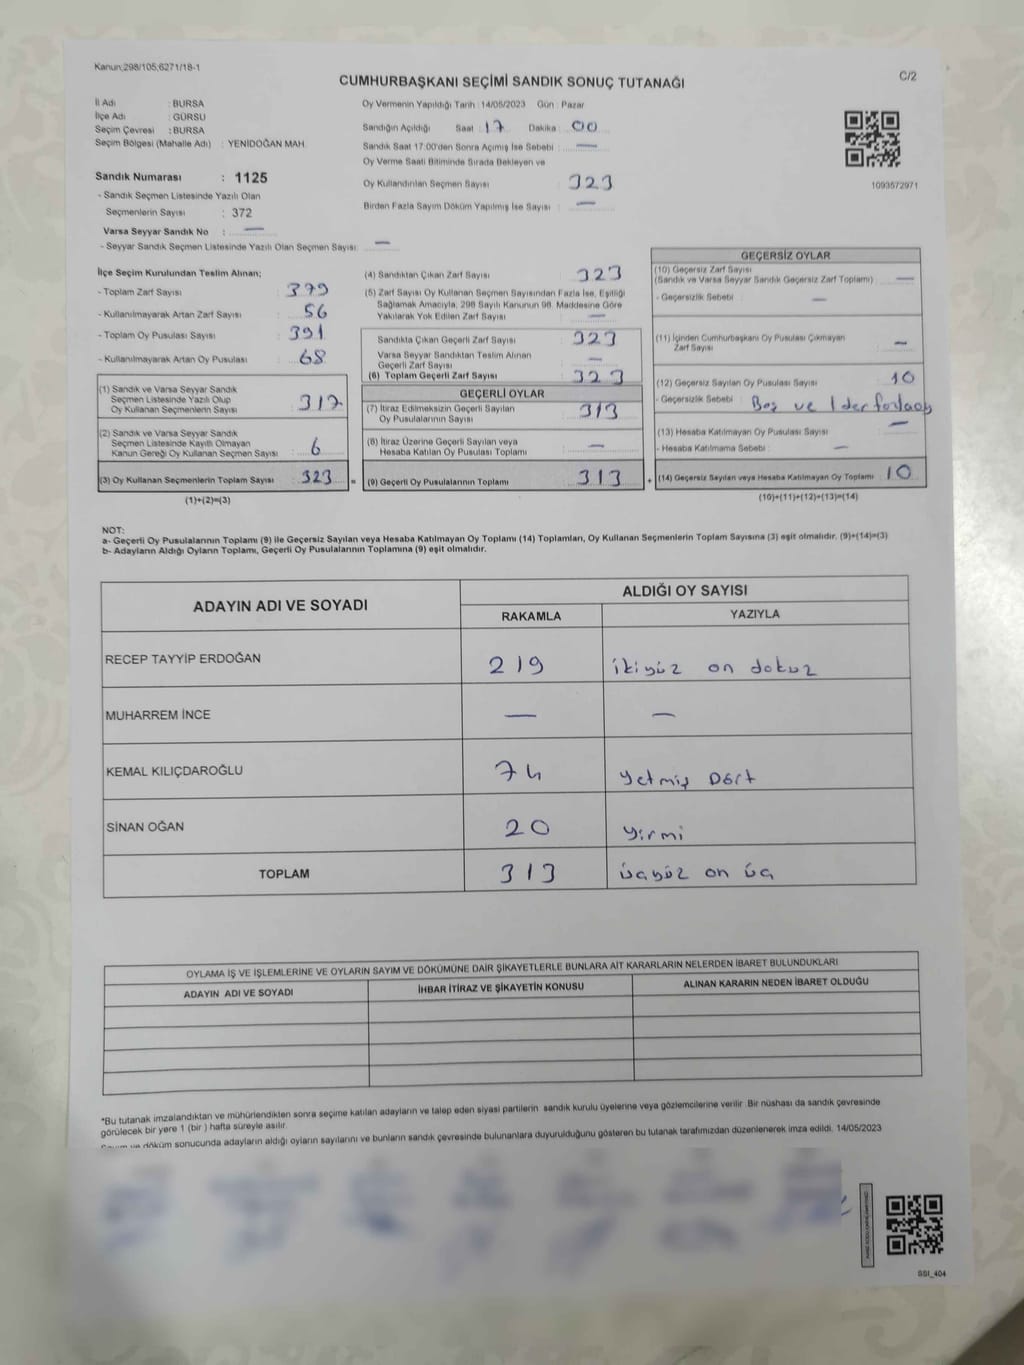 Kanun;298/105;6271/18-1
C/2
CUMHURBAŞKANI SEÇİMİ SANDIK SONUÇ TUTANAĞI
İl Adı : BURSA
İlçe Adı : GÜRSU
Seçim Çevresi : BURSA
Seçim Bölgesi (Mahalle Adı) : YENİDOĞAN MAH.
Sandık Numarası : 1125
- Sandık Seçmen Listesinde Yazılı Olan
Seçmenlerin Sayısı : 372
Varsa Seyyar Sandık No : —
- Seyyar Sandık Seçmen Listesinde Yazılı Olan Seçmen Sayısı: —
Oy Vermenin Yapıldığı Tarih : 14/05/2023 Gün : Pazar
Sandığın Açıldığı Saat : 17 Dakika : 00
Sandık Saat 17:00'den Sonra Açılmış İse Sebebi : —
Oy Verme Saati Bitiminde Sırada Bekleyen ve
Oy Kullandırılan Seçmen Sayısı : 323
Birden Fazla Sayım Döküm Yapılmış İse Sayısı : —
1093572971
İlçe Seçim Kurulundan Teslim Alınan;
- Toplam Zarf Sayısı : 379
- Kullanılmayarak Artan Zarf Sayısı : 56
- Toplam Oy Pusulası Sayısı : 391
- Kullanılmayarak Artan Oy Pusulası : 68
(1) Sandık ve Varsa Seyyar Sandık
Seçmen Listesinde Yazılı Olup
Oy Kullanan Seçmenlerin Sayısı : 317
(2) Sandık ve Varsa Seyyar Sandık
Seçmen Listesinde Kayıtlı Olmayan
Kanun Gereği Oy Kullanan Seçmen Sayısı : 6
(3) Oy Kullanan Seçmenlerin Toplam Sayısı : 323
(1)+(2)=(3)
(4) Sandıktan Çıkan Zarf Sayısı : 323
(5) Zarf Sayısı Oy Kullanan Seçmen Sayısından Fazla İse, Eşitliği
Sağlamak Amacıyla, 298 Sayılı Kanunun 98. Maddesine Göre
Yakılarak Yok Edilen Zarf Sayısı : —
Sandıkta Çıkan Geçerli Zarf Sayısı : 323
Varsa Seyyar Sandıktan Teslim Alınan
Geçerli Zarf Sayısı : —
(6) Toplam Geçerli Zarf Sayısı : 323
GEÇERLİ OYLAR
(7) İtiraz Edilmeksizin Geçerli Sayılan
Oy Pusulalarının Sayısı : 313
(8) İtiraz Üzerine Geçerli Sayılan veya
Hesaba Katılan Oy Pusulası Toplamı : —
(9) Geçerli Oy Pusulalarının Toplamı : 313
GEÇERSİZ OYLAR
(10) Geçersiz Zarf Sayısı
(Sandık ve Varsa Seyyar Sandık Geçersiz Zarf Toplamı) : —
- Geçersizlik Sebebi : —
(11) İçinden Cumhurbaşkanı Oy Pusulası Çıkmayan
Zarf Sayısı : —
(12) Geçersiz Sayılan Oy Pusulası Sayısı : 10
- Geçersizlik Sebebi : Boş ve 1 den fazla oy
(13) Hesaba Katılmayan Oy Pusulası Sayısı : —
- Hesaba Katılmama Sebebi : —
(14) Geçersiz Sayılan veya Hesaba Katılmayan Oy Toplamı : 10
(10)+(11)+(12)+(13)=(14)
NOT:
a- Geçerli Oy Pusulalarının Toplamı (9) ile Geçersiz Sayılan veya Hesaba Katılmayan Oy Toplamı (14) Toplamları, Oy Kullanan Seçmenlerin Toplam Sayısına (3) eşit olmalıdır. (9)+(14)=(3)
b- Adayların Aldığı Oyların Toplamı, Geçerli Oy Pusulalarının Toplamına (9) eşit olmalıdır.
ADAYIN ADI VE SOYADI ALDIĞI OY SAYISI
RAKAMLA YAZIYLA
RECEP TAYYİP ERDOĞAN 219 ikiyüz on dokuz
MUHARREM İNCE — —
KEMAL KILIÇDAROĞLU 74 Yetmiş Dört
SİNAN OĞAN 20 Yirmi
TOPLAM 313 üçyüz on üç
OYLAMA İŞ VE İŞLEMLERİNE VE OYLARIN SAYIM VE DÖKÜMÜNE DAİR ŞİKAYETLERLE BUNLARA AİT KARARLARIN NELERDEN İBARET BULUNDUKLARI
ADAYIN ADI VE SOYADI İHBAR İTİRAZ VE ŞİKAYETİN KONUSU ALINAN KARARIN NEDEN İBARET OLDUĞU
*Bu tutanak imzalandıktan ve mühürlendikten sonra seçime katılan adayların ve talep eden siyasi partilerin sandık kurulu üyelerine veya gözlemcilerine verilir. Bir nüshası da sandık çevresinde
görülecek bir yere 1 (bir ) hafta süreyle asılır.
ve döküm sonucunda adayların aldığı oyların sayılarını ve bunların sandık çevresinde bulunanlara duyurulduğunu gösteren bu tutanak tarafımızdan düzenlenerek imza edildi. 14/05/2023
SSI_404